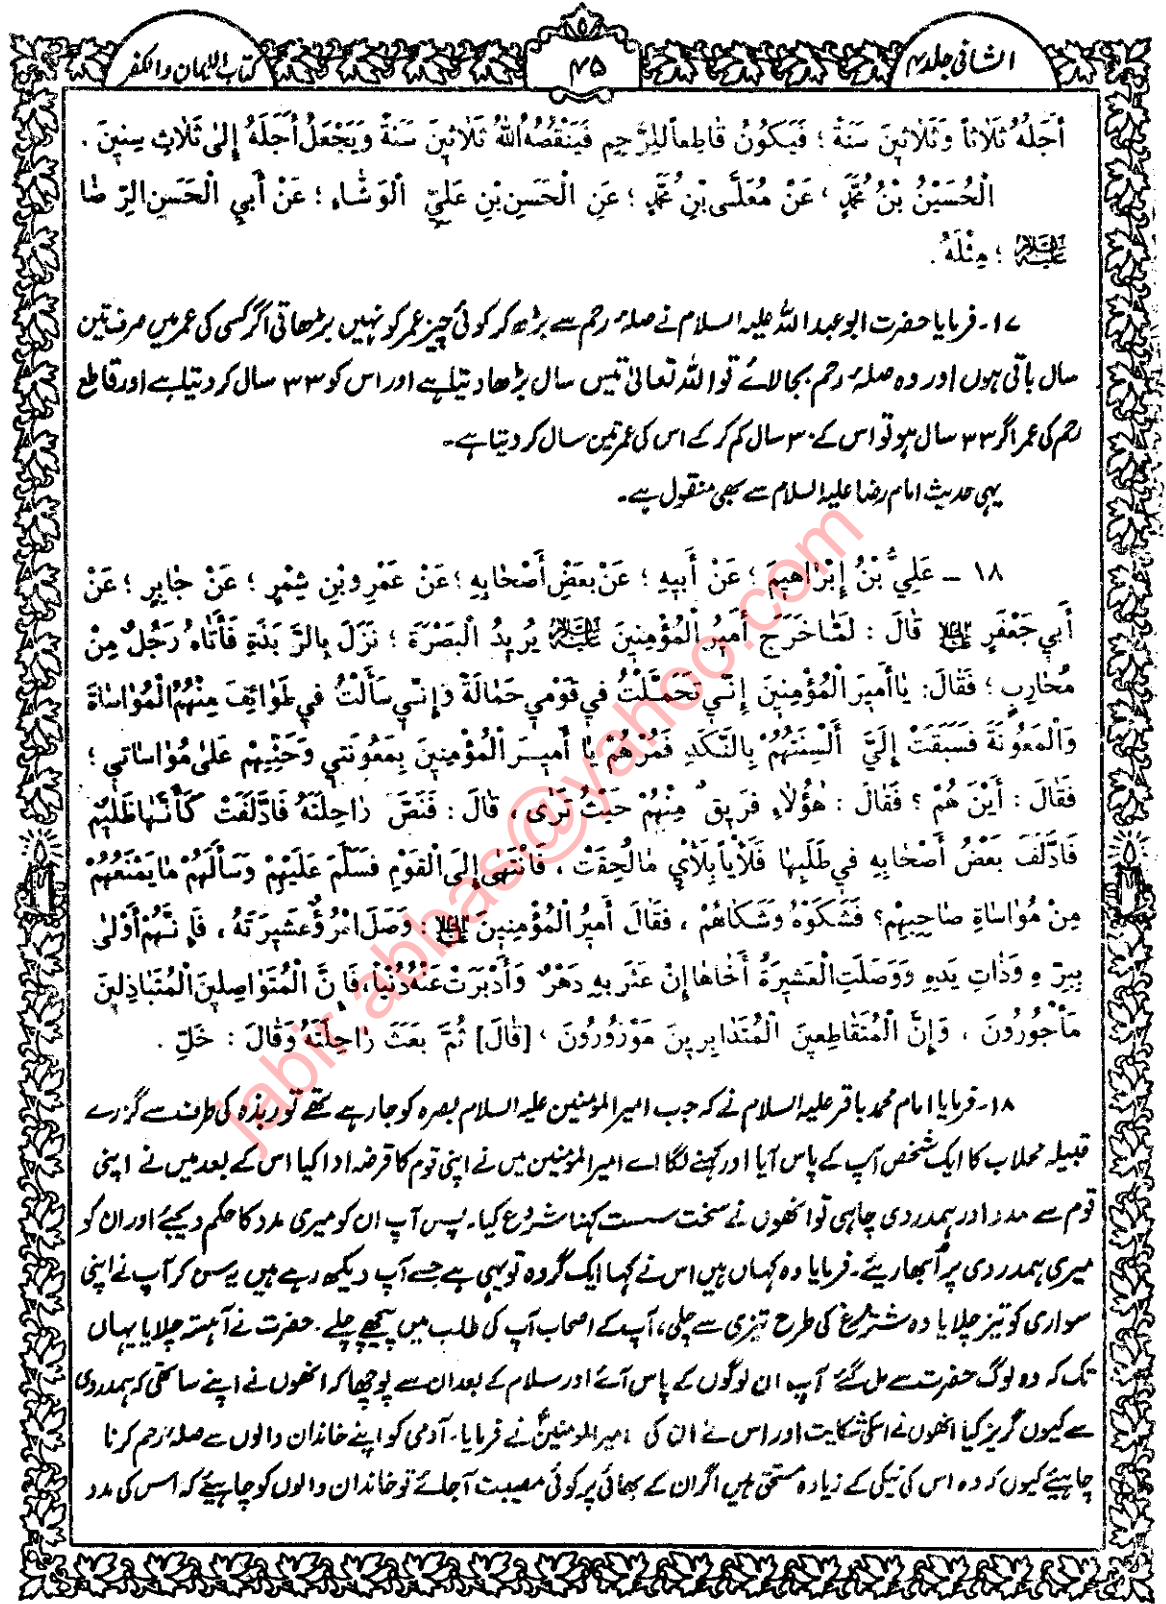 الشافی جلد ۴
۴۵
کتاب الایمان والکفر
أَجَلُهُ ثَلَاثاً وَثَلَاثِينَ سَنَةً ؛ فَيَكُونُ قَاطِعاً لِلرَّحِمِ فَيَنْقُصُهُ اللهُ ثَلَاثِينَ سَنَةً وَيَجْعَلُ أَجَلَهُ إِلَىٰ ثَلَاثِ سِنِينَ .
الْحُسَيْنُ بْنُ مُحَمَّدٍ ، عَنْ مُعَلَّى بْنِ مُحَمَّدٍ ؛ عَنِ الْحَسَنِ بْنِ عَلِيٍّ الْوَشَّاءِ ؛ عَنْ أَبِي الْحَسَنِ الرِّضَا
عَلَيْهِ السَّلَامُ ؛ مِثْلَهُ .
۱۷۔ فرمایا حضرت ابو عبد اللہ علیہ السلام نے صلۂ رحم سے بڑھ کر کوئی چیز عمر کو نہیں بڑھاتی اگر کسی کی عمر میں صرف تین
سال باقی ہوں اور وہ صلۂ رحم بجا لائے تو اللہ تعالیٰ تیس سال بڑھا دیتا ہے اور اس کو ۳۳ سال کر دیتا ہے اور قاطع
رحم کی عمر اگر ۳۳ سال ہو تو اس کے ۳۰ سال کم کر کے اس کی عمر تین سال کر دیتا ہے۔
یہی حدیث امام رضا علیہ السلام سے بھی منقول ہے۔
١٨ ـ عَلِيُّ بْنُ إِبْرَاهِيمَ ؛ عَنْ أَبِيهِ ؛ عَنْ بَعْضِ أَصْحَابِهِ ؛ عَنْ عَمْرِو بْنِ شِمْرٍ ؛ عَنْ جَابِرٍ ؛ عَنْ
أَبِي جَعْفَرٍ عليه السلام قَالَ : لَمَّا خَرَجَ أَمِيرُ الْمُؤْمِنِينَ عَلَيْهِ السَّلَامُ يُرِيدُ الْبَصْرَةَ ؛ نَزَلَ بِالرَّبَذَةِ فَأَتَاهُ رَجُلٌ مِنْ
مُحَارِبٍ ؛ فَقَالَ: يَا أَمِيرَ الْمُؤْمِنِينَ إِنِّي تَحَمَّلْتُ فِي قَوْمِي حَمَالَةً وَإِنِّي سَأَلْتُ فِي طَوَائِفَ مِنْهُمُ الْمُوَاسَاةَ
وَالْمَعُونَةَ فَسَبَقَتْ إِلَيَّ أَلْسِنَتُهُمْ بِالنَّكَدِ فَمُرْهُمْ يَا أَمِيرَ الْمُؤْمِنِينَ بِمَعُونَتِي وَحُثَّهُمْ عَلَىٰ مُوَاسَاتِي ؛
فَقَالَ : أَيْنَ هُمْ ؟ فَقَالَ : هٰؤُلَاءِ فَرِيقٌ مِنْهُمْ حَيْثُ تَرَىٰ ، قَالَ : فَنَصَّ رَاحِلَتَهُ فَادَّلَفَتْ كَأَنَّهَا ظَلِيمٌ
فَادَّلَفَ بَعْضُ أَصْحَابِهِ فِي طَلَبِهَا فَلَأْياً بِلَأْيٍ مَا لُحِقَتْ ، فَانْتَهَىٰ إِلَى الْقَوْمِ فَسَلَّمَ عَلَيْهِمْ وَسَأَلَهُمْ مَا يَمْنَعُهُمْ
مِنْ مُوَاسَاةِ صَاحِبِهِمْ؟ فَشَكَوْهُ وَشَكَاهُمْ ، فَقَالَ أَمِيرُ الْمُؤْمِنِينَ عليه السلام : وَصَلَ امْرُؤٌ عَشِيرَتَهُ ، فَإِنَّهُمْ أَوْلَىٰ
بِبِرِّهِ وَذَاتِ يَدِهِ وَوَصَلَتِ الْعَشِيرَةُ أَخَاهَا إِنْ عَثَرَ بِهِ دَهْرٌ وَأَدْبَرَتْ عَنْهُ دُنْيَا، فَإِنَّ الْمُتَوَاصِلِينَ الْمُتَبَاذِلِينَ
مَأْجُورُونَ ، وَإِنَّ الْمُتَقَاطِعِينَ الْمُتَدَابِرِينَ مَوْزُورُونَ ، [قَالَ] ثُمَّ بَعَثَ رَاحِلَتَهُ وَقَالَ : خَلِّ .
۱۸۔ فرمایا امام محمد باقر علیہ السلام نے کہ جب امیر المومنین علیہ السلام بصرہ کو جا رہے تھے تو ربذہ کی طرف سے گزرے
قبیلہ محلاب کا ایک شخص آپ کے پاس آیا اور کہنے لگا اے امیر المومنین میں نے اپنی قوم کا قرضہ ادا کیا اس کے بعد میں نے اپنی
قوم سے مدد اور ہمدردی چاہی تو انھوں نے سخت سست کہنا شروع کیا۔ پس آپ ان کو میری مدد کا حکم دیجیے اور ان کو
میری ہمدردی پر اُبھاریئے۔ فرمایا وہ کہاں ہیں اس نے کہا ایک گروہ تو یہی ہے جسے آپ دیکھ رہے ہیں یہ سن کر آپ نے اپنی
سواری کو تیز چلایا وہ شتر مرغ کی طرح تیزی سے چلی، آپ کے اصحاب آپ کی طلب میں پیچھے چلے۔ حضرت نے آہستہ چلایا یہاں
تک کہ وہ لوگ حضرت سے مل گئے آپ ان لوگوں کے پاس آئے اور سلام کے بعد ان سے پوچھا کہ انھوں نے اپنے ساتھی کی ہمدردی
سے کیوں گریز کیا انھوں نے اسکی شکایت اور اس نے ان کی ، امیر المومنینؑ نے فرمایا۔ آدمی کو اپنے خاندان والوں سے صلۂ رحم کرنا
چاہیئے کیوں کہ وہ اس کی نیکی کے زیادہ مستحق ہیں اگر ان کے بھائی پر کوئی مصیبت آجائے تو خاندان والوں کو چاہیئے کہ اس کی مدد
jabir.abbas@yahoo.com